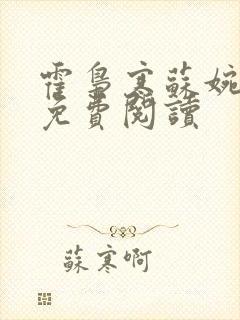 霍梟寒蘇婉
免費閱讀
蘇寒啊